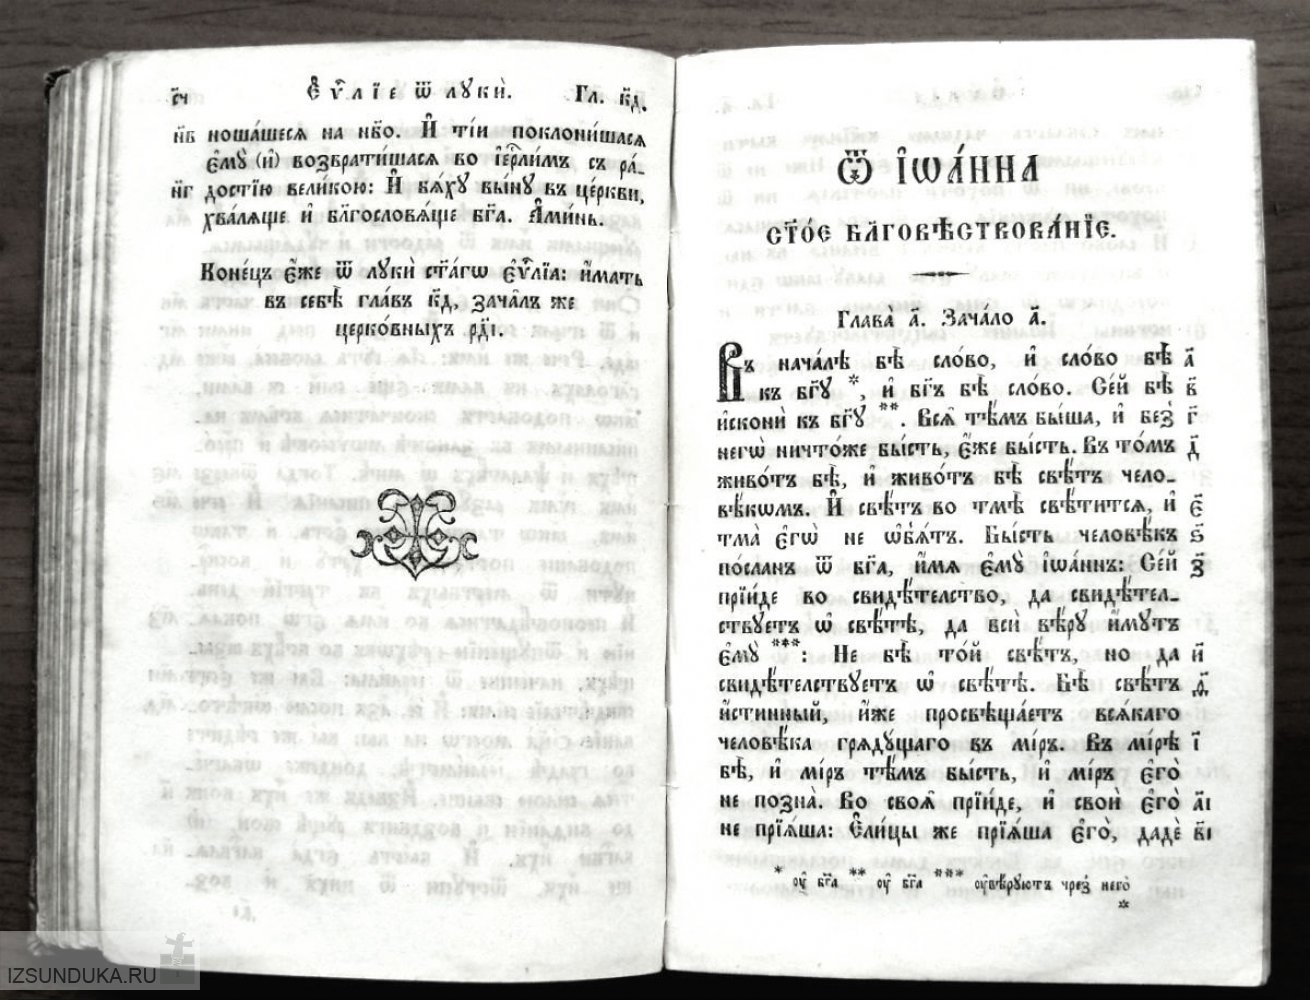 сч Є҆ѵⷢ҇лїе ѿ лꙋкѝ. Гл. к҃д.
н҃в ноша́шесѧ на нб҃о. И҆ ті́и поклони́шасѧ
є҆мꙋ̀ (и҆) возврати́шасѧ во і҆ерⷭ҇ли́мъ съ ра́-
н҃г достїю вели́кою: И҆ бѧ́хꙋ вы́нꙋ въ це́ркви,
хва́лѧще и҆ благословѧ́ще бг҃а. А҆ми́нь.
Коне́цъ є҆́же ѿ лꙋкѝ ст҃а́гѡ є҆ѵⷢ҇лїа: и҆́мать
въ себѣ̀ гла́въ к҃д, зача́лъ же
церко́вныхъ рд҃і.
Ѿ І҆Ѡа́ННА
СТ҃О́Е БЛ҃ГОВѢ́СТВОВАНЇЕ.
Глава̀ а҃. Зача́ло а҃.
Въ нача́лѣ бѣ̀ сло́во, и҆ сло́во бѣ̀ а҃
къ бг҃ꙋ *, и҆ бг҃ъ бѣ̀ сло́во. Се́й бѣ̀ в҃
и҆сконѝ къ бг҃ꙋ **. Всѧ̑ тѣ́мъ бы́ша, и҆ без̾ г҃
негѡ̀ ничто́же бы́сть, є҆́же бы́сть. Въ то́мъ д҃
живо́тъ бѣ̀, и҆ живо́тъ бѣ̀ свѣ́тъ чело-
вѣ́кѡмъ. И҆ свѣ́тъ во тмѣ̀ свѣ́титсѧ, и҆ є҃
тма̀ є҆гѡ̀ не ѡ҆б̾ѧ́тъ. Бы́сть человѣ́къ ѕ҃
по́сланъ ѿ бг҃а, и҆́мѧ є҆мꙋ̀ і҆ѡа́ннъ: Се́й з҃
прїи́де во свидѣ́телство, да свидѣ́тел-
ствꙋетъ ѡ҆ свѣ́тѣ, да всѝ вѣ́рꙋ и҆́мꙋтъ
є҆мꙋ̀ ***: Не бѣ̀ то́й свѣ́тъ, но да и҃
свидѣ́телствꙋетъ ѡ҆ свѣ́тѣ. Бѣ̀ свѣ́тъ ѳ҃
и҆́стинный, и҆́же просвѣща́етъ всѧ́каго
человѣ́ка грѧдꙋ́щаго въ мі́ръ. Въ мі́рѣ і҃
бѣ̀, и҆ мі́ръ тѣ́мъ бы́сть, и҆ мі́ръ є҆гѡ̀
не позна̀. Во своѧ̑ прїи́де, и҆ своѝ є҆гѡ̀ а҃і
не прїѧ́ша: Є҆ли́цы же прїѧ́ша є҆го̀, дадѐ в҃і
* оу҆ бг҃а ** оу҆ бг҃а *** оу҆вѣ́рꙋютъ чрез̾ него̀
*
IZSUNDUKA.RU